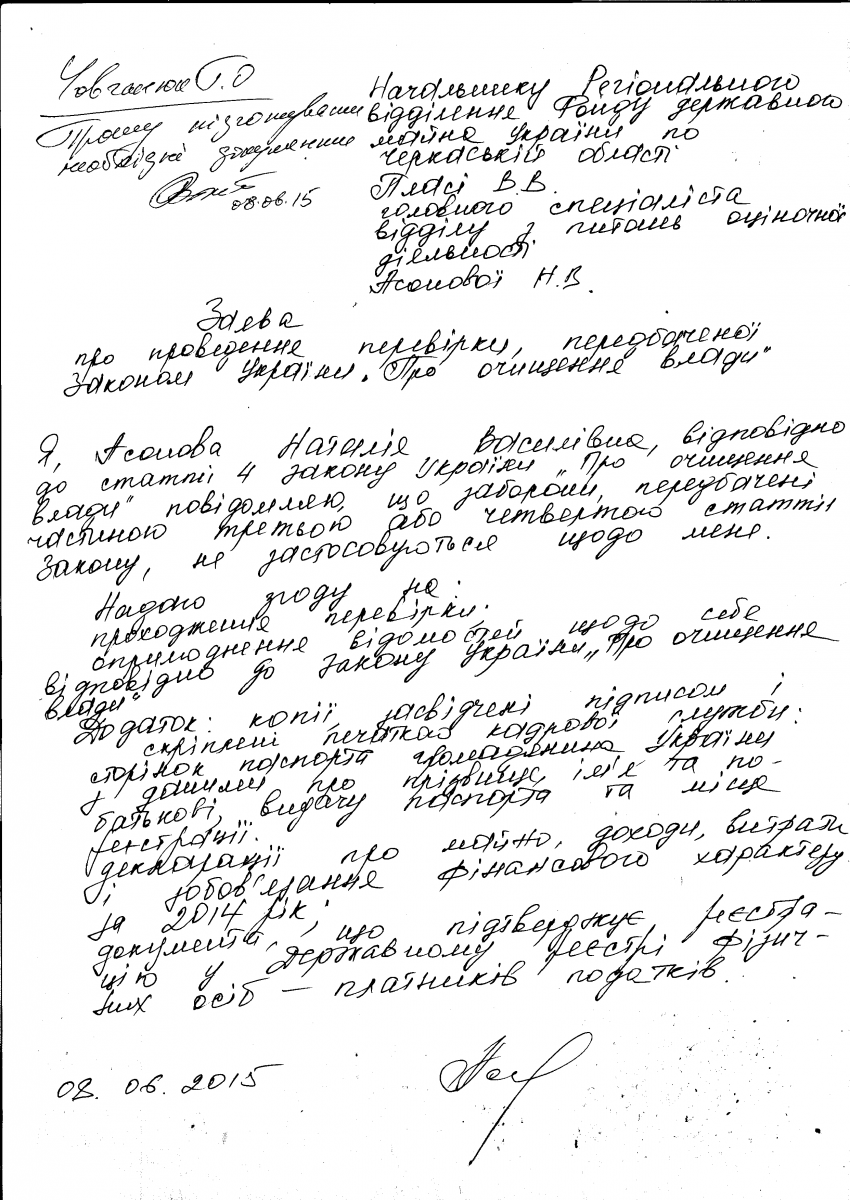 Човганюк Г.О
Прошу підготувати
необхідні документи
08.06.15
Начальнику Регіонального
відділення Фонду державного
майна України по
Черкаській області
Пласі В.В.
головного спеціаліста
відділу з питань оціночної
діяльності
Асонової Н.В.
Заява
про проведення перевірки, передбаченої
Законом України „Про очищення влади"
Я, Асонова Наталія Василівна, відповідно
до статті 4 Закону України „Про очищення
влади" повідомляю, що заборони, передбачені
частиною третьою або четвертою статті
Закону, не застосовуються щодо мене.
Надаю згоду на:
проходження перевірки;
оприлюднення відомостей щодо себе
відповідно до Закону України „Про очищення
влади"
Додаток: копії, засвідчені підписом і
скріплені печаткою кадрової служби:
сторінок паспорта громадянина України
з даними про прізвище, ім'я та по-
батькові, видачу паспорта та місце
реєстрації.
декларації про майно, доходи, витрати
і зобов'язання фінансового характеру
за 2014 рік;
документа, що підтверджує реєстра-
цію у Державному реєстрі фізич-
них осіб – платників податків.
08. 06. 2015